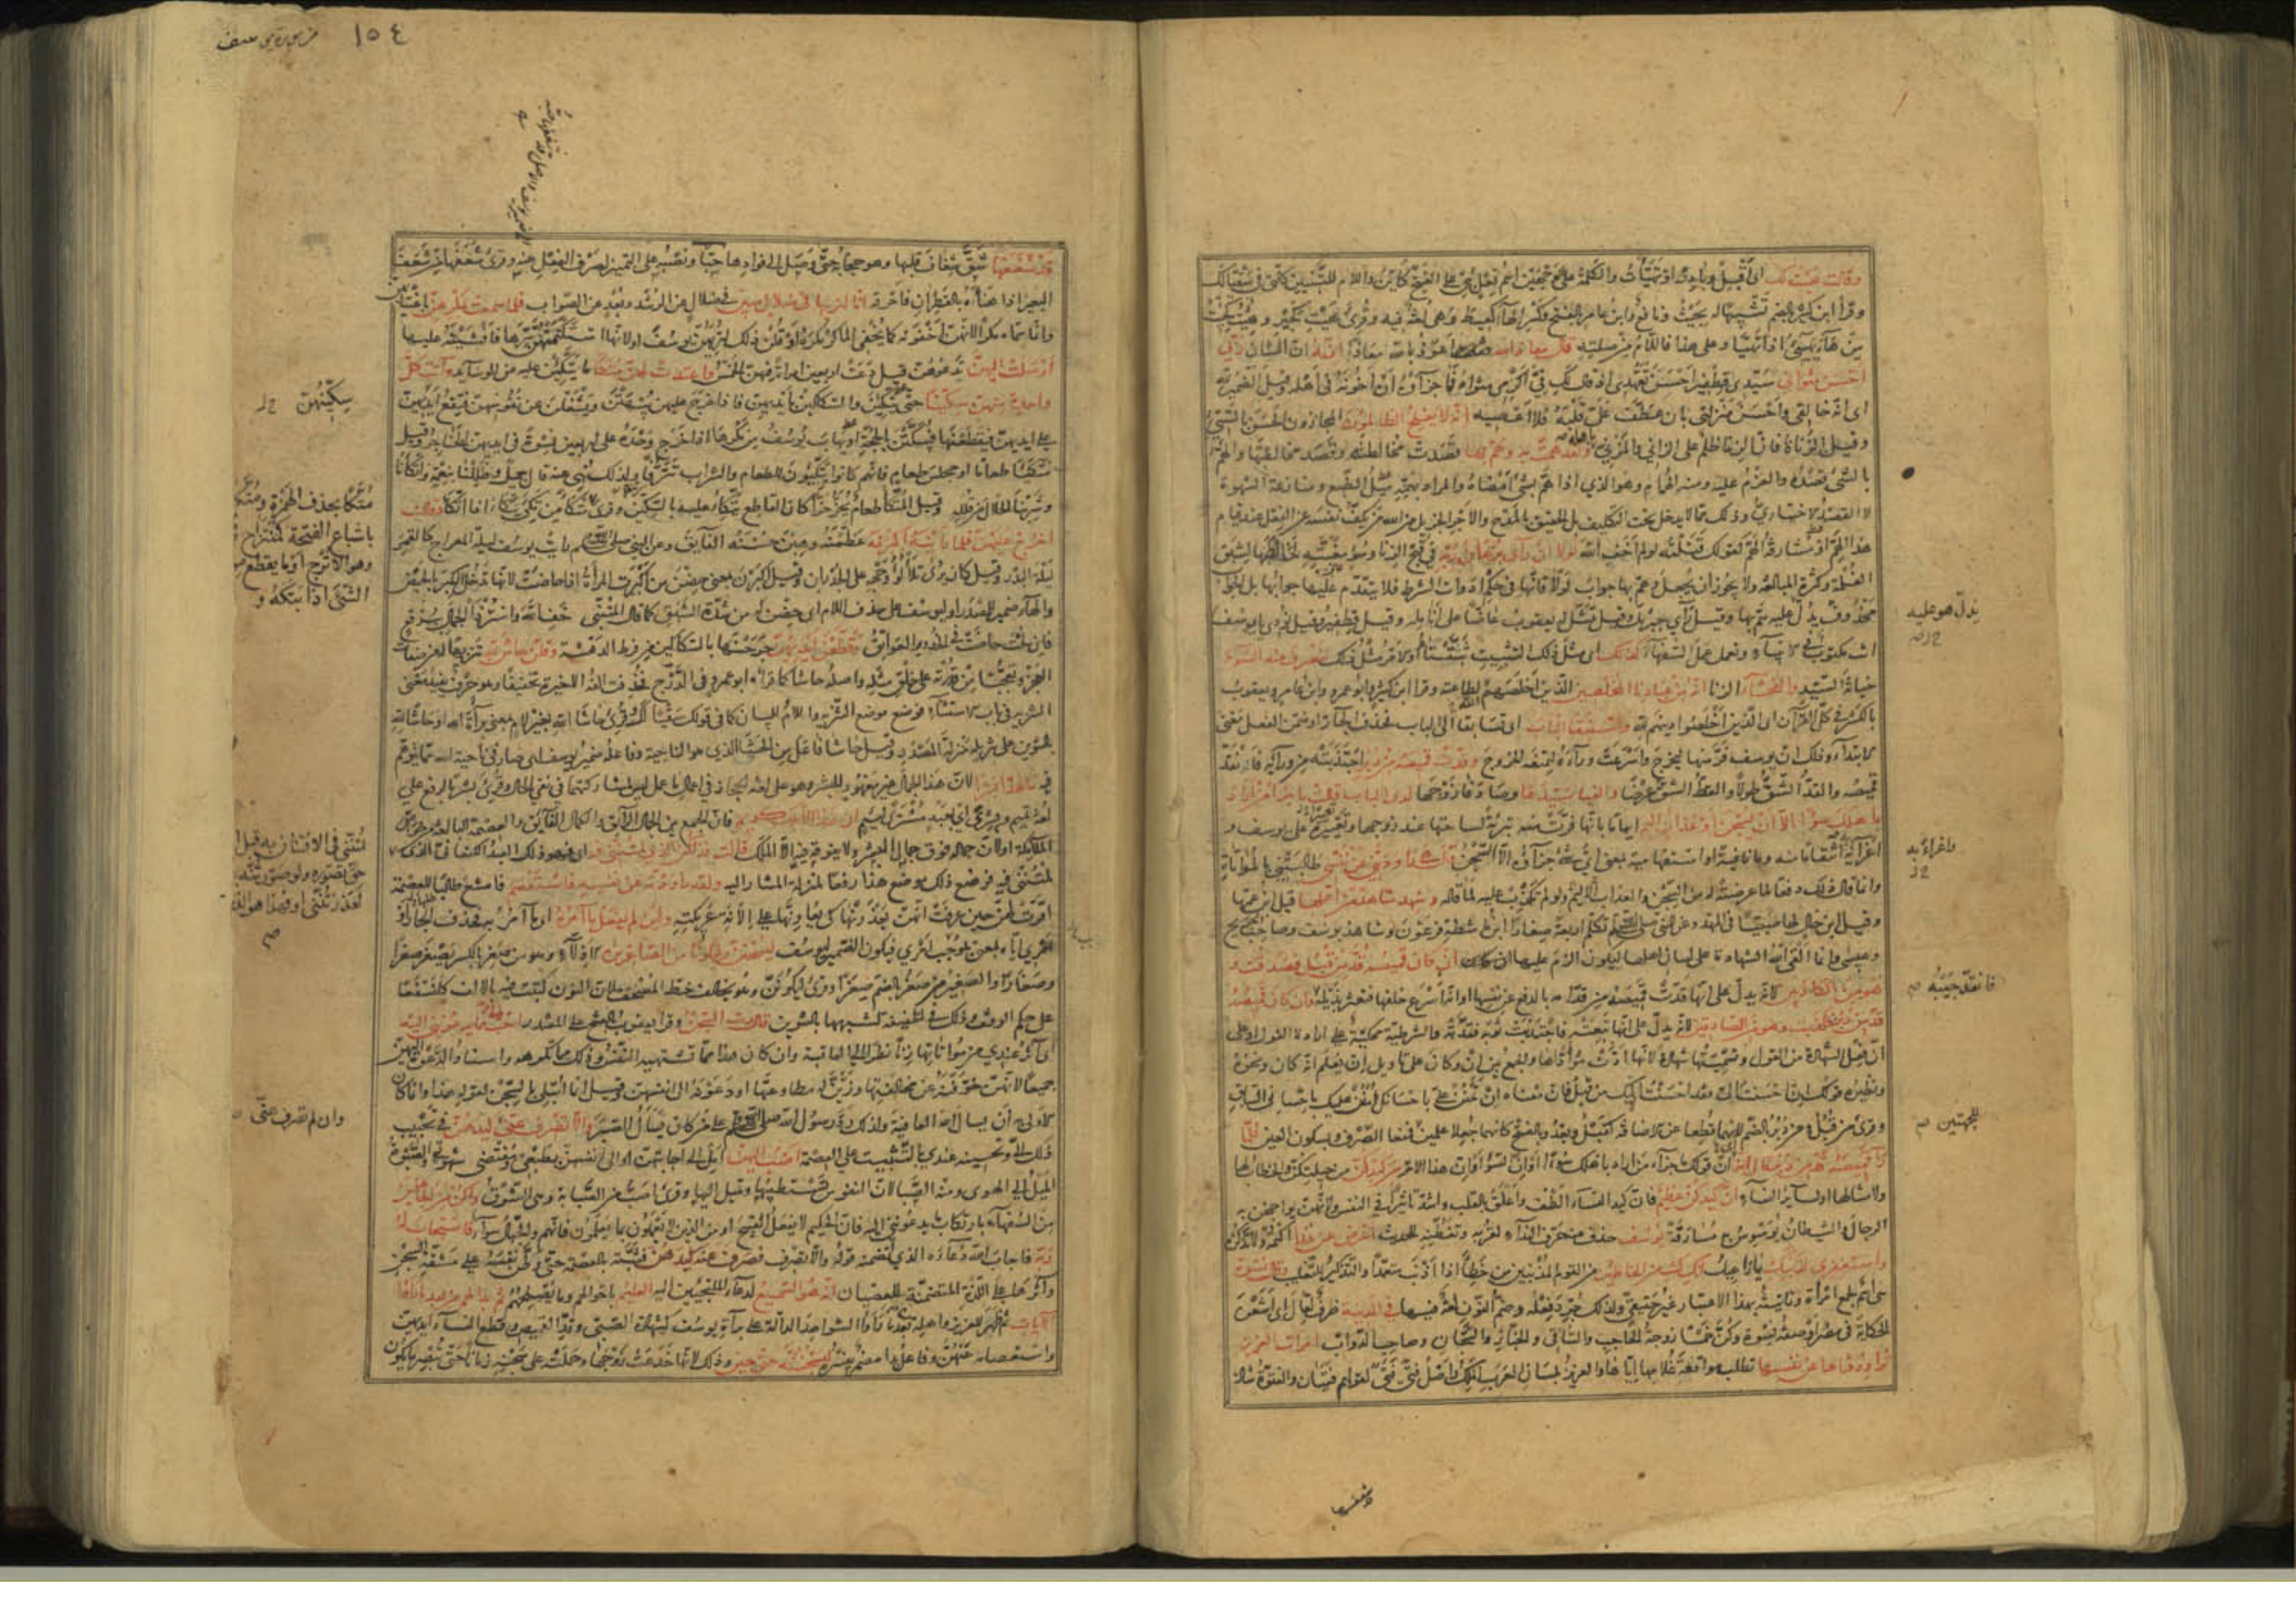 وقالت هيت لك اى اقبل وبادر او تهيأت والكلمة على الوجهين اسم فعل بنى على الفتح كاين واللام للتبيين كالتى فى سقيا لك
وقرأ ابن كثير بالضم تشبيها له بحيث ونافع وابن عامر بالفتح وكسر الهاء كعيط وهى لغة فيه وقرئ هيت كجير وهئت كجئت
من هاء يهيئ اذا تهيأ وعلى هذا فاللام من صلته قال معاذ الله اعوذ بالله معاذا انه ان الشان ربى
احسن مثواى سيدى قطفير احسن تعهدى اذ قال لك فى اكرمى مثواه فما جزاؤه ان اخونه فى اهله وقيل الضمير لله
اى انه خالقى واحسن منزلتى بان عطف على قلبه فلا اعصيه انه لا يفلح الظالمون المجازون الحسن بالسيئ
وقيل الزناة فان الزنا ظلم على الزانى والمزنى باهله ولقد همت به وهم بها قصدت مخالطته وقصد مخالطتها والهم
بالشئ قصده والعزم عليه ومنه الهمام وهو الذى اذا هم بشئ امضاه والمراد بهمه ميل الطبع ومنازعة الشهوة
لا القصد الاختيارى وذلك مما لا يدخل تحت التكليف بل الحقيق بالمدح والاجر الجزيل من الله من يكف نفسه عن الفعل عند قيام
هذا الهم او مشارفة الهم كقولك قتلته لو لم اخف الله لولا ان رأى برهان ربه فى قبح الزنا وسوء مغبته لخالطها لشبق
الغلمة وكثرة المبالغة ولا يجوز ان يجعل وهم بها جواب لولا فانها فى حكم ادوات الشرط فلا يتقدم عليها جوابها بل الجواب
محذوف يدل عليه هم بها وقيل رأى جبريل وقيل تمثل له يعقوب عاضا على انامله وقيل قطفير وقيل نودى يا يوسف
انت مكتوب فى الانبياء وتعمل عمل السفهاء كذلك اى مثل ذلك التثبيت ثبتناه او الامر مثل ذلك لنصرف عنه السوء
خيانة السيد والفحشاء الزنا انه من عبادنا المخلصين الذين اخلصهم الله لطاعته وقرأ ابن كثير وابو عمرو وابن عامر ويعقوب
بالكسر فى كل القرآن اى الذين اخلصوا دينهم لله واستبقا الباب اى تسابقا الى الباب فحذف الجار او ضمن الفعل معنى
الابتداء وذلك ان يوسف فر منها ليخرج واسرعت وراءه لتمنعه الخروج وقدت قميصه من دبر اجتذبته من ورائه فانقد
قميصه والقد الشق طولا والقط الشق عرضا والفيا سيدها وصادفا زوجها لدى الباب قالت ما جزاء من اراد
باهلك سوءا الا ان يسجن او عذاب اليم ايهاما بانها فرت منه تبرئة لساحتها عند زوجها وتغييره على يوسف و
اغراءه انتقاما منه وما نافية او استفهامية بمعنى اى شئ جزاؤه الا السجن قال هى راودتنى عن نفسى طالبتنى بالمواتاة
وانما قال ذلك دفعا لما عرضته له من السجن والعذاب الاليم ولو لم تكذب عليه لما قاله وشهد شاهد من اهلها قيل ابن عمها
وقيل ابن خال لها صبيا فى المهد وعن النبى صلى الله عليه وسلم تكلم اربعة صغارا ابن ماشطة فرعون وشاهد يوسف وصاحب جريج
وعيسى وانما القى الله الشهادة على لسان اهلها ليكون الزم عليها ان كان قميصه قد من قبل فصدقت و
هو من الكاذبين لانه يدل على انها قدت قميصه من قدامه بالدفع عن نفسها او انه اسرع خلفها فتعثر بذيله وان كان قميصه
قد من دبر فكذبت وهو من الصادقين لانه يدل على انها تبعته فاجتذبت ثوبه فقدته والشرطية محكية على ارادة القول او على
ان فعل الشهادة من القول وتسميتها شهادة لانها ادت مؤداها والجمع بين ان وكان على تاويل ان يعلم انه كان ونحوه
ونظيره قولك ان احسنت الى فقد احسنت اليك من قبل فان معناه ان تمنن على باحسانك امنن عليك باحسانى السابق
وقرئ من قبل ومن دبر بالضم لانهما قطعا عن الاضافة كقبل وبعد وبالفتح كانهما جعلا علمين فمنعا الصرف وبسكون العين فلما
رأى قميصه قد من دبر قال انه ان قولك ما جزاء من اراد باهلك سوءا او ان السوء او ان هذا الامر من كيدكن من حيلتكن والخطاب لها
ولامثالها او لسائر النساء ان كيدكن عظيم فان كيد النساء الطف واعلق بالقلب واشد تاثيرا فى النفس ولانهن يواجهن به
الرجال والشيطان يوسوس به مسارقة يوسف حذف منه حرف النداء لقربه وتفطنه للحديث اعرض عن هذا اكتمه ولا تذكره
واستغفرى لذنبك يا راعيل انك كنت من الخاطئين من القوم المذنبين من خطئ اذا اذنب متعمدا والتذكير للتغليب وقال نسوة
هى اسم لجمع امرأة وتانيثه بهذا الاعتبار غير حقيقى ولذلك جرد فعله وضم النون لغة فيها فى المدينة ظرف لقال اى اشعن
الحكاية فى مصر او صفة نسوة وكن خمسا زوجة الحاجب والساقى والخباز والسجان وصاحب الدواب امرأة العزيز
تراود فتاها عن نفسه تطلب مواقعة غلامها اياها والعزيز بلسان العرب الملك واصل فتى فتى لقولهم فتيان والفتوة شاذة
يدل هو عليه
واغراءه به
فانقد جيبه
للجهتين
١٥٤
قد شغفها شق شغاف قلبها وهو حجابه حتى وصل الى فوادها حبا ونصبه على التمييز لصرف الفعل عنه وقرئ شعفها من شعف
البعير اذا هنأه بالقطران فاحرقه انا لنراها فى ضلال مبين فى ضلال عن الرشد وبعد عن الصواب فلما سمعت بمكرهن باغتيابهن
وانما سماه مكرا لانهن اخفينه كما يخفى الماكر مكره او قلن ذلك لتريهن يوسف او لانها استكتمتهن سرها فافشينه عليها
ارسلت اليهن تدعوهن قيل دعت اربعين امرأة فيهن الخمس واعتدت لهن متكأ ما يتكئن عليه من الوسايد وآتت كل
واحدة منهن سكينا حتى يتكئن والسكاكين بايديهن فاذا خرج عليهن يبهتن ويشغلن عن نفوسهن فتقع ايديهن
على ايديهن فيقطعنها فيبكتن بالحجة او يهاب يوسف من مكرها اذا خرج وحده على اربعين نسوة فى ايديهن الخناجر وقيل
متكئا طعاما او مجلس طعام فانهم كانوا يتكئون للطعام والشراب تترفا ولذلك نهى عنه قال جميل فظللنا بنعمة واتكأنا
وشربنا الحلال من قلله وقيل المتكأ طعام يحز حزا كان القاطع يتكئ عليه بالسكين وقرئ متكا من تكئ اذا اتكأ وقالت
اخرج عليهن فلما رأينه اكبرنه عظمنه وهبن حسنه الفايق وعن النبى صلى الله عليه وسلم رأيت يوسف ليلة المعراج كالقمر
ليلة البدر وقيل كان يرى تلألؤ وجهه على الجدران وقيل اكبرن بمعنى حضن من اكبرت المرأة اذا حاضت لانها تدخل الكبر بالحيض
والهاء ضمير للمصدر او ليوسف على حذف اللام اى حضن له من شدة الشبق كما قال المتنبى خف الله واستر ذا الجمال ببرقع
فان لحت حاضت فى الخدور العواتق وقطعن ايديهن جرحنها بالسكاكين من فرط الدهشة وقلن حاش لله تنزيها له من صفات
العجز وتعجبا من قدرته على خلق مثله واصله حاشا كما قرأه ابو عمرو فى الدرج فحذفت الفه الاخيرة تخفيفا وهو حرف يفيد معنى
التنزيه فى باب الاستثناء فوضع موضع التنزيه واللام للبيان كما فى قولك سقيا لك وقرئ حاشا الله بغير لام بمعنى براءة الله وحاشا لله
بالتنوين على تنزيله منزلة المصدر وقيل حاشا فاعل من الحشا الذى هو الناحية وفاعله ضمير يوسف اى صار فى ناحية لله مما يتوهم
فيه ما هذا بشرا لان هذا الجمال غير معهود للبشر وهو على لغة الحجاز فى اعمال ما عمل ليس لمشاركتهما فى نفى الحال وقرئ بشر بالرفع على
لغة تميم وبشرى اى بعبد مشترى لئيم ان هذا الا ملك كريم فان الجمع بين الجمال الرائق والكمال الفايق والعصمة البالغة من خواص
الملائكة او لان جماله فوق جمال البشر ولا يفوقه فيه الا الملك قالت فذلكن الذى لمتننى فيه اى فهو ذلك العبد الكنعانى الذى
لمتننى فيه فوضع ذلك موضع هذا رفعا لمنزلة المشار اليه ولقد راودته عن نفسه فاستعصم فامتنع طلبا للعصمة
اقرت لهن حين عرفت انهن يعذرنها كى يعاونها على الانة عريكته ولئن لم يفعل ما آمره اى ما آمر به فحذف الجار او
امرى اياه بمعنى موجب امرى فيكون الضمير ليوسف ليسجنن وليكونا من الصاغرين الاذلاء وهو من صغر بالكسر يصغر صغرا
وصغارا والصغير من صغر بالضم صغرا وقرئ ليكونن وهو يخالف خط المصحف لان النون كتبت فيه بالالف كلنسفعا
على حكم الوقف وذلك فى الخفيفة لشبهها بالتنوين قال رب السجن وقرأ يعقوب بالفتح على المصدر احب الى مما يدعوننى اليه
اى آثر عندى من مؤاتاتها زنا نظرا الى العاقبة وان كان هذا مما تشتهيه النفس وذلك مما تكرهه واسناد الدعوة اليهن
جميعا لانهن خوفنه عن مخالفتها وزين له مطاوعتها او دعونه الى انفسهن وقيل انما ابتلى بالسجن لقوله هذا وانما كان
الاولى ان يسأل الله العافية ولذلك رد رسول الله صلى الله عليه وسلم على من كان يسأل الصبر والا تصرف عنى كيدهن فى تحبيب
ذلك الى وتحسينه عندى بالتثبيت على العصمة اصب اليهن امل الى اجابتهن او الى انفسهن بطبعى ومقتضى شهوتى والصبوة
الميل الى الهوى ومنه الصبا لان النفوس تستطيبها وتميل اليها وقرئ اصب من الصبابة وهى الشوق واكن من الجاهلين
من السفهاء بارتكاب ما يدعوننى اليه فان الحكيم لا يفعل القبيح او من الذين لا يعملون بما يعلمون فانهم والجهال سواء فاستجاب له
ربه فاجاب الله دعاءه الذى تضمنه قوله والا تصرف فصرف عنه كيدهن فثبته بالعصمة حتى وطن نفسه على مشقة السجن
وآثرها على اللذة المتضمنة للعصيان انه هو السميع لدعاء الملتجئين اليه العليم باحوالهم وما يصلحهم ثم بدا لهم من بعد ما رأوا
الآيات ثم ظهر للعزيز واهله بعد ما رأوا الشواهد الدالة على براءة يوسف كشهادة الصبى وقد القميص وقطع النساء ايديهن
واستعصامه عنهن وفاعل بدا مضمر يفسره ليسجننه حتى حين وذلك لانها خدعت زوجها وحملته على سجنه زمانا حتى تبصر ما يكون
سكينهن
متكا بحذف الهمزة ومتكاء
باشباع الفتحة كمنتزاح
وهو الاترج او ما يقطع من
الشئ اذا بتكه و
لمتننى فى الافتتان به قبل ان
تصورنه
وان لم تصرف عنى